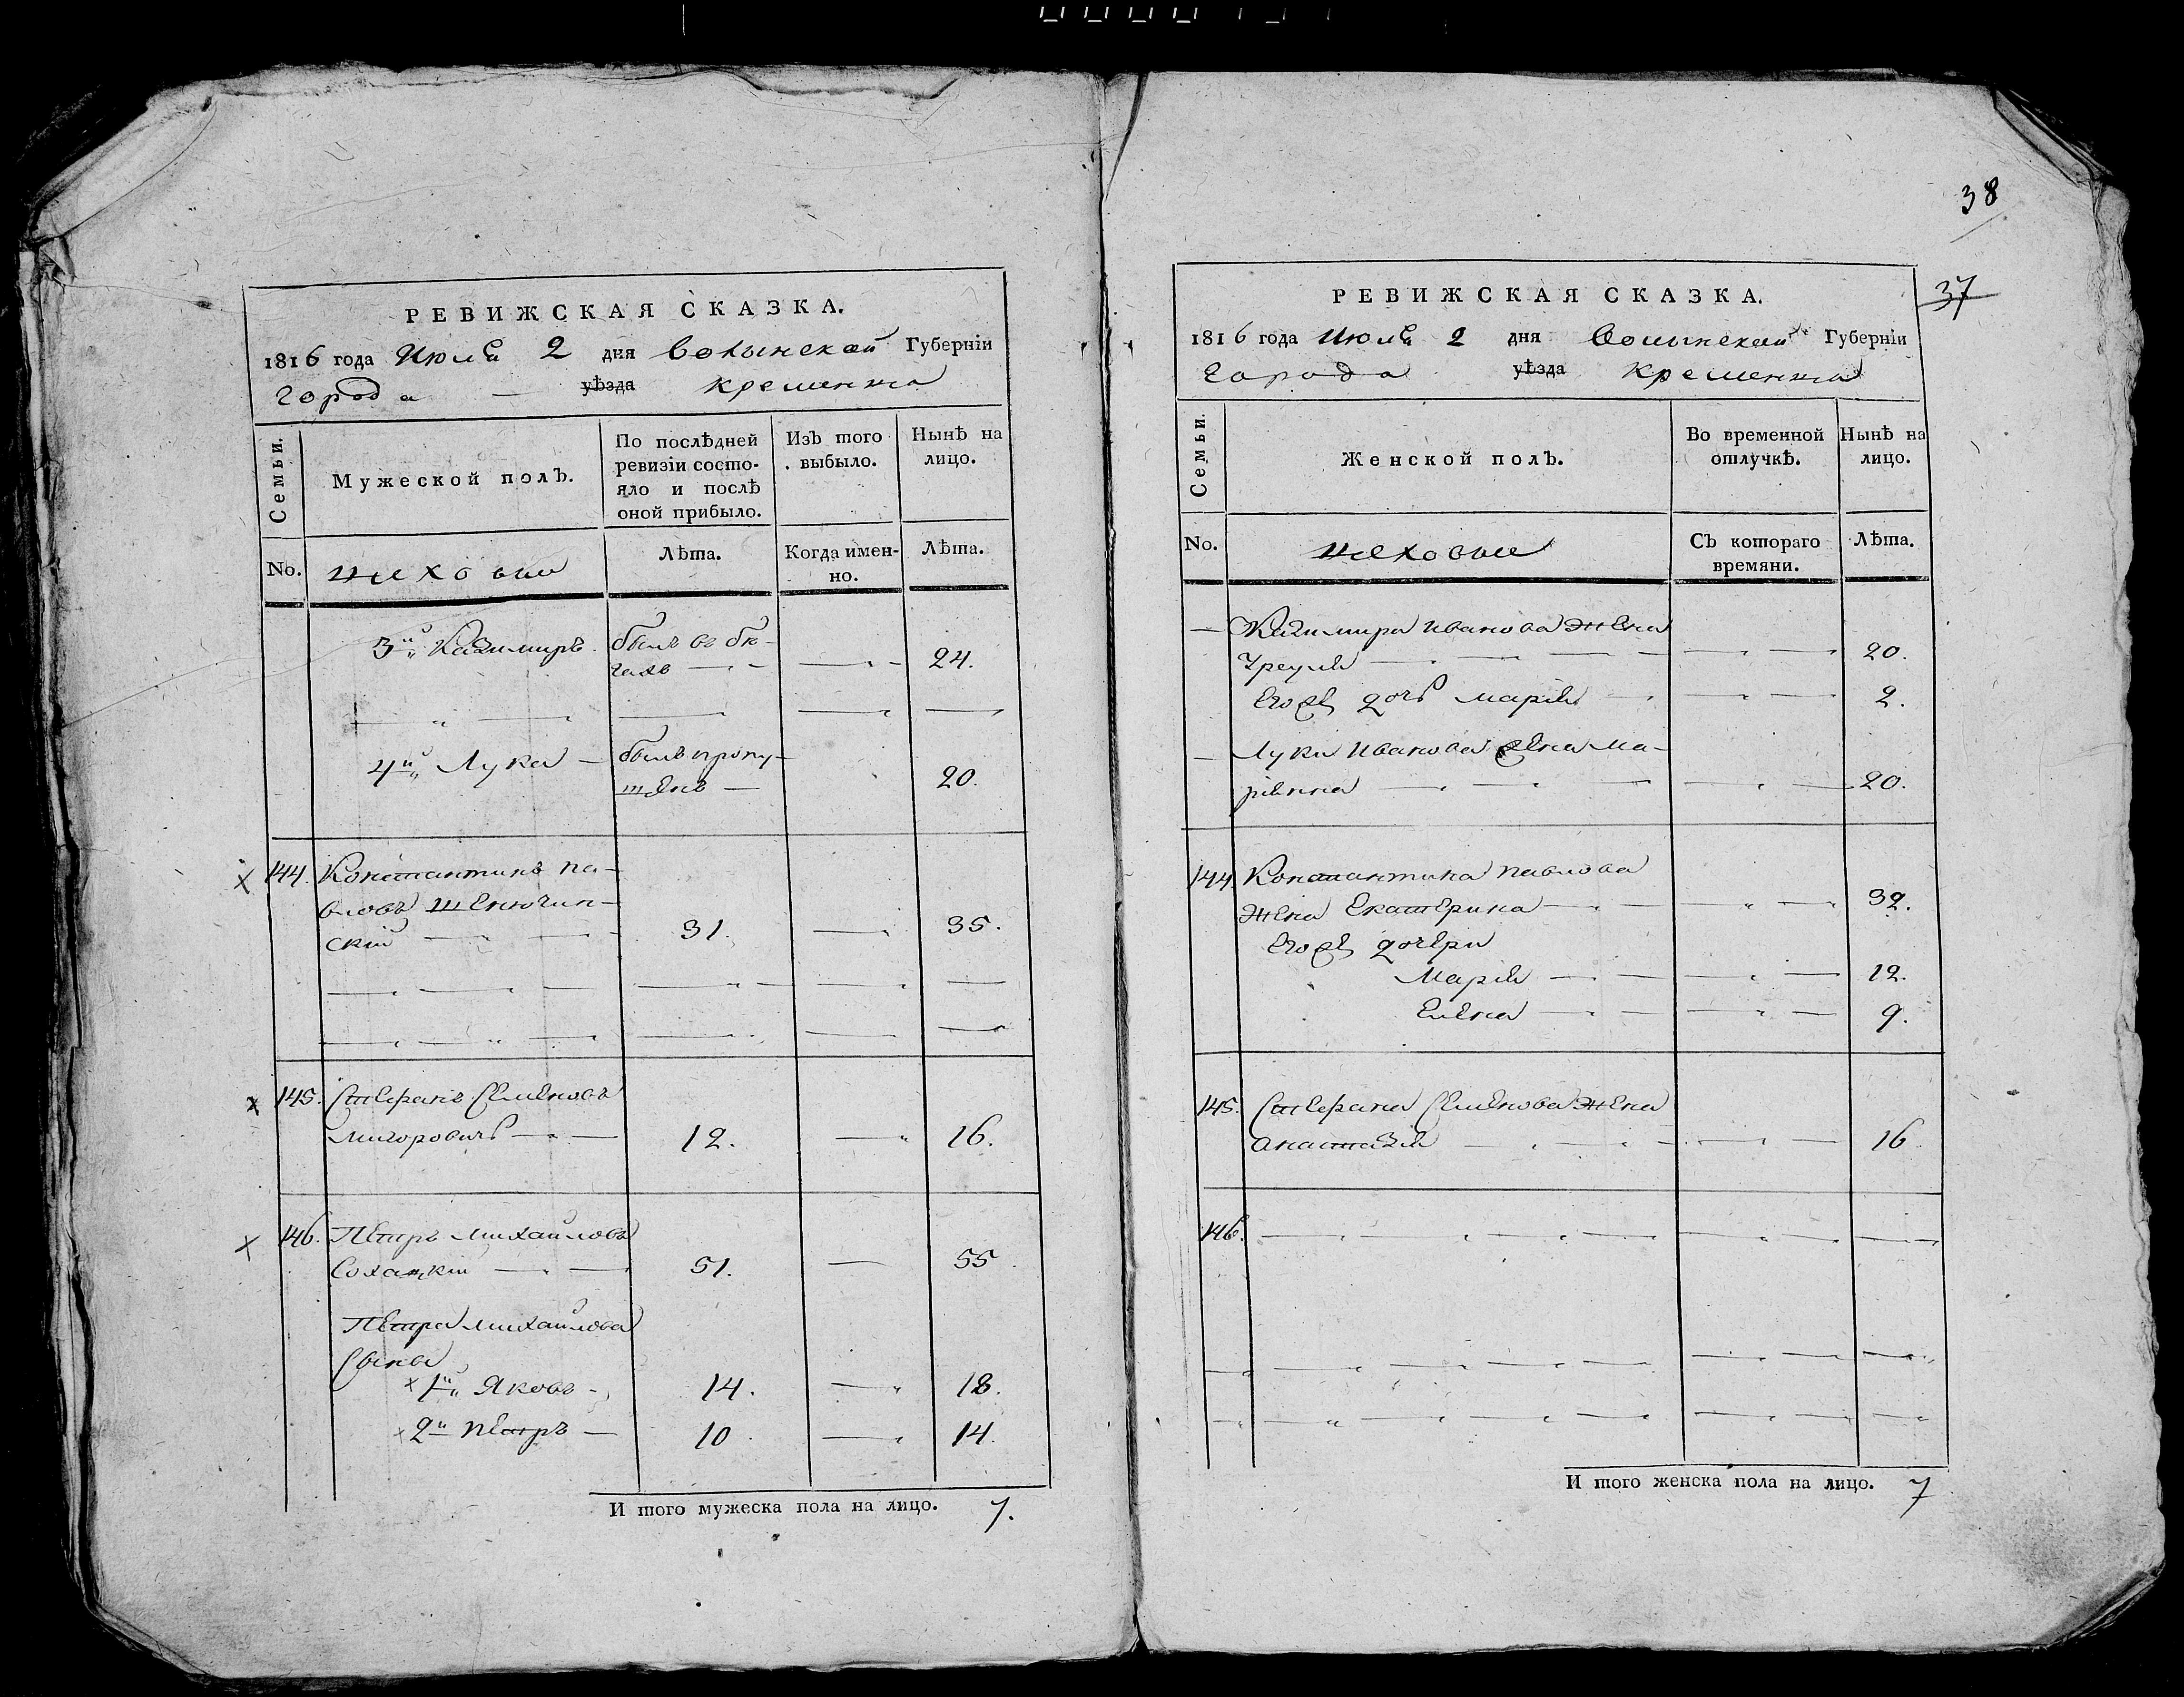 38
37
РЕВИЖСКАЯ СКАЗКА.
1816 года Июля 2 дня Волынской Губерніи
города — уѣзда кременца
Семьи.
Мужеской полъ.
По послѣдней ревизіи состо-
яло и послѣ
оной прибыло.
Изъ того
выбыло.
Нынѣ на
лицо.
No.
цеховыи
Лѣта.
Когда имен-
но.
Лѣта.
3й Казимиръ былъ въ бѣ-
гахъ — — 24.
4й Лука — былъ пропу-
щенъ — 20.
144. Константинъ па-
вловъ
скій — — 31. — 35.
145. Стефанъ Семеновъ
Мигоровичъ — — 12. — 16.
146. Петръ михайловъ
Сохацкій — — 51. — 55
Петра михайлова
Сыны
1й Яковъ — 14. — 18.
2й петръ — 10 — 14.
И того мужеска пола на лицо. 7.
РЕВИЖСКАЯ СКАЗКА.
1816 года Июля 2 дня Волынской Губерніи
города уѣзда кременца
Семьи.
Женской полъ.
Во временной
отлучкѣ.
Нынѣ на
лицо.
No.
цеховыи
Съ котораго
времяни.
Лѣта.
— Казимира иванова жена
— — — 20.
Егожъ дочь марія — — 2.
— Луки иванова жена ма-
ріянна — — — 20.
144. Константина павлова
жена Екатерина — — 32.
Егожъ дочери
Марія — — 12.
Елена — — 9.
145. Стефана Семенова жена
анастазія — — — 16
146. — — — —
И того женска пола на лицо. 7